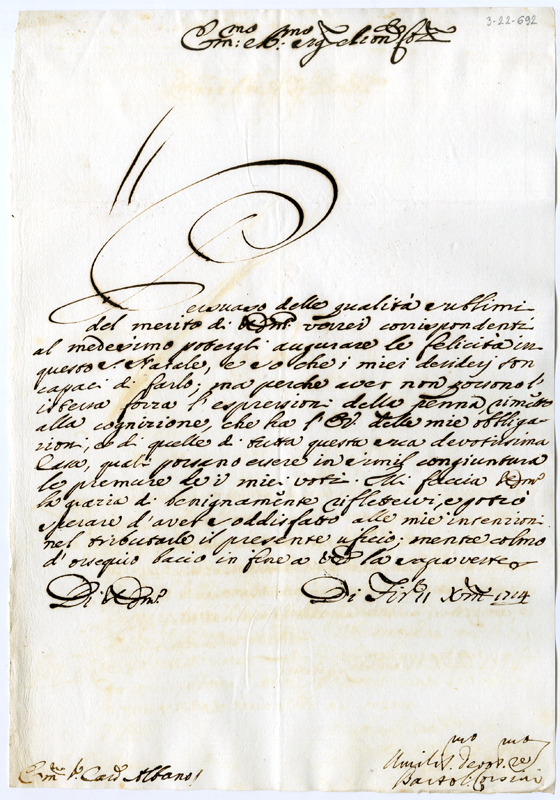 3-22-692
Em:mo e R:mo Sig.re
Persuaso delle qualità sublimi
del merito di V Em.a vorrei corrispondenti
al medesimo potergli augurare le felicità in
questo S. Natale, e so che i miei desiderj son
capaci di farlo; ma perche aver non possono l'
istessa forza l'espressioni della penna, rimetto
alla cognizione, che ha l' E.V. delle mie obbliga=
zioni, e di quelle di tutta questa sua devotissima
Casa, quali possano essere in simil congiuntura
le premure de i miei voti. Mi faccia V Em.a
la grazia di benignam.te riflettervi, e potrò
sperare d'aver soddisfatto alle mie intenzioni
nel tributarle il presente ufficio; mentre colmo
d'ossequio bacio in fine a V.E. la sagra veste
Di V Em.a Di Fir.e 11 Xmbre 1714
Em.mo S. Card. Albano
Umiliss.mo Devot.mo Se.re
Bartol. Corsini